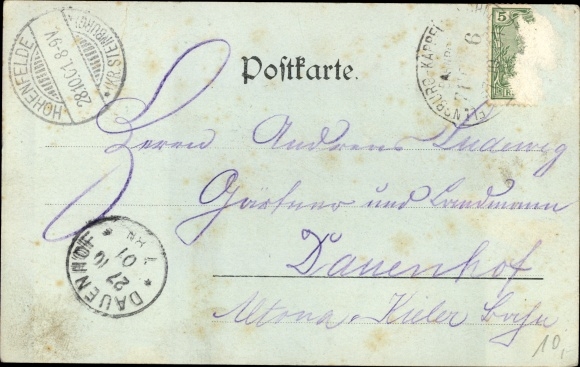 HOHENFELDE
28.10.01.8-9V
*(KR. STEINBURG)*
FLENSBURG-KAPPELN
6
5
Postkarte.
Herrn Andreas Ludewig
Gärtner und Landmann
DAUENHOF
27 10
01
Dauenhof
Altona-Kieler Bahn
10,-